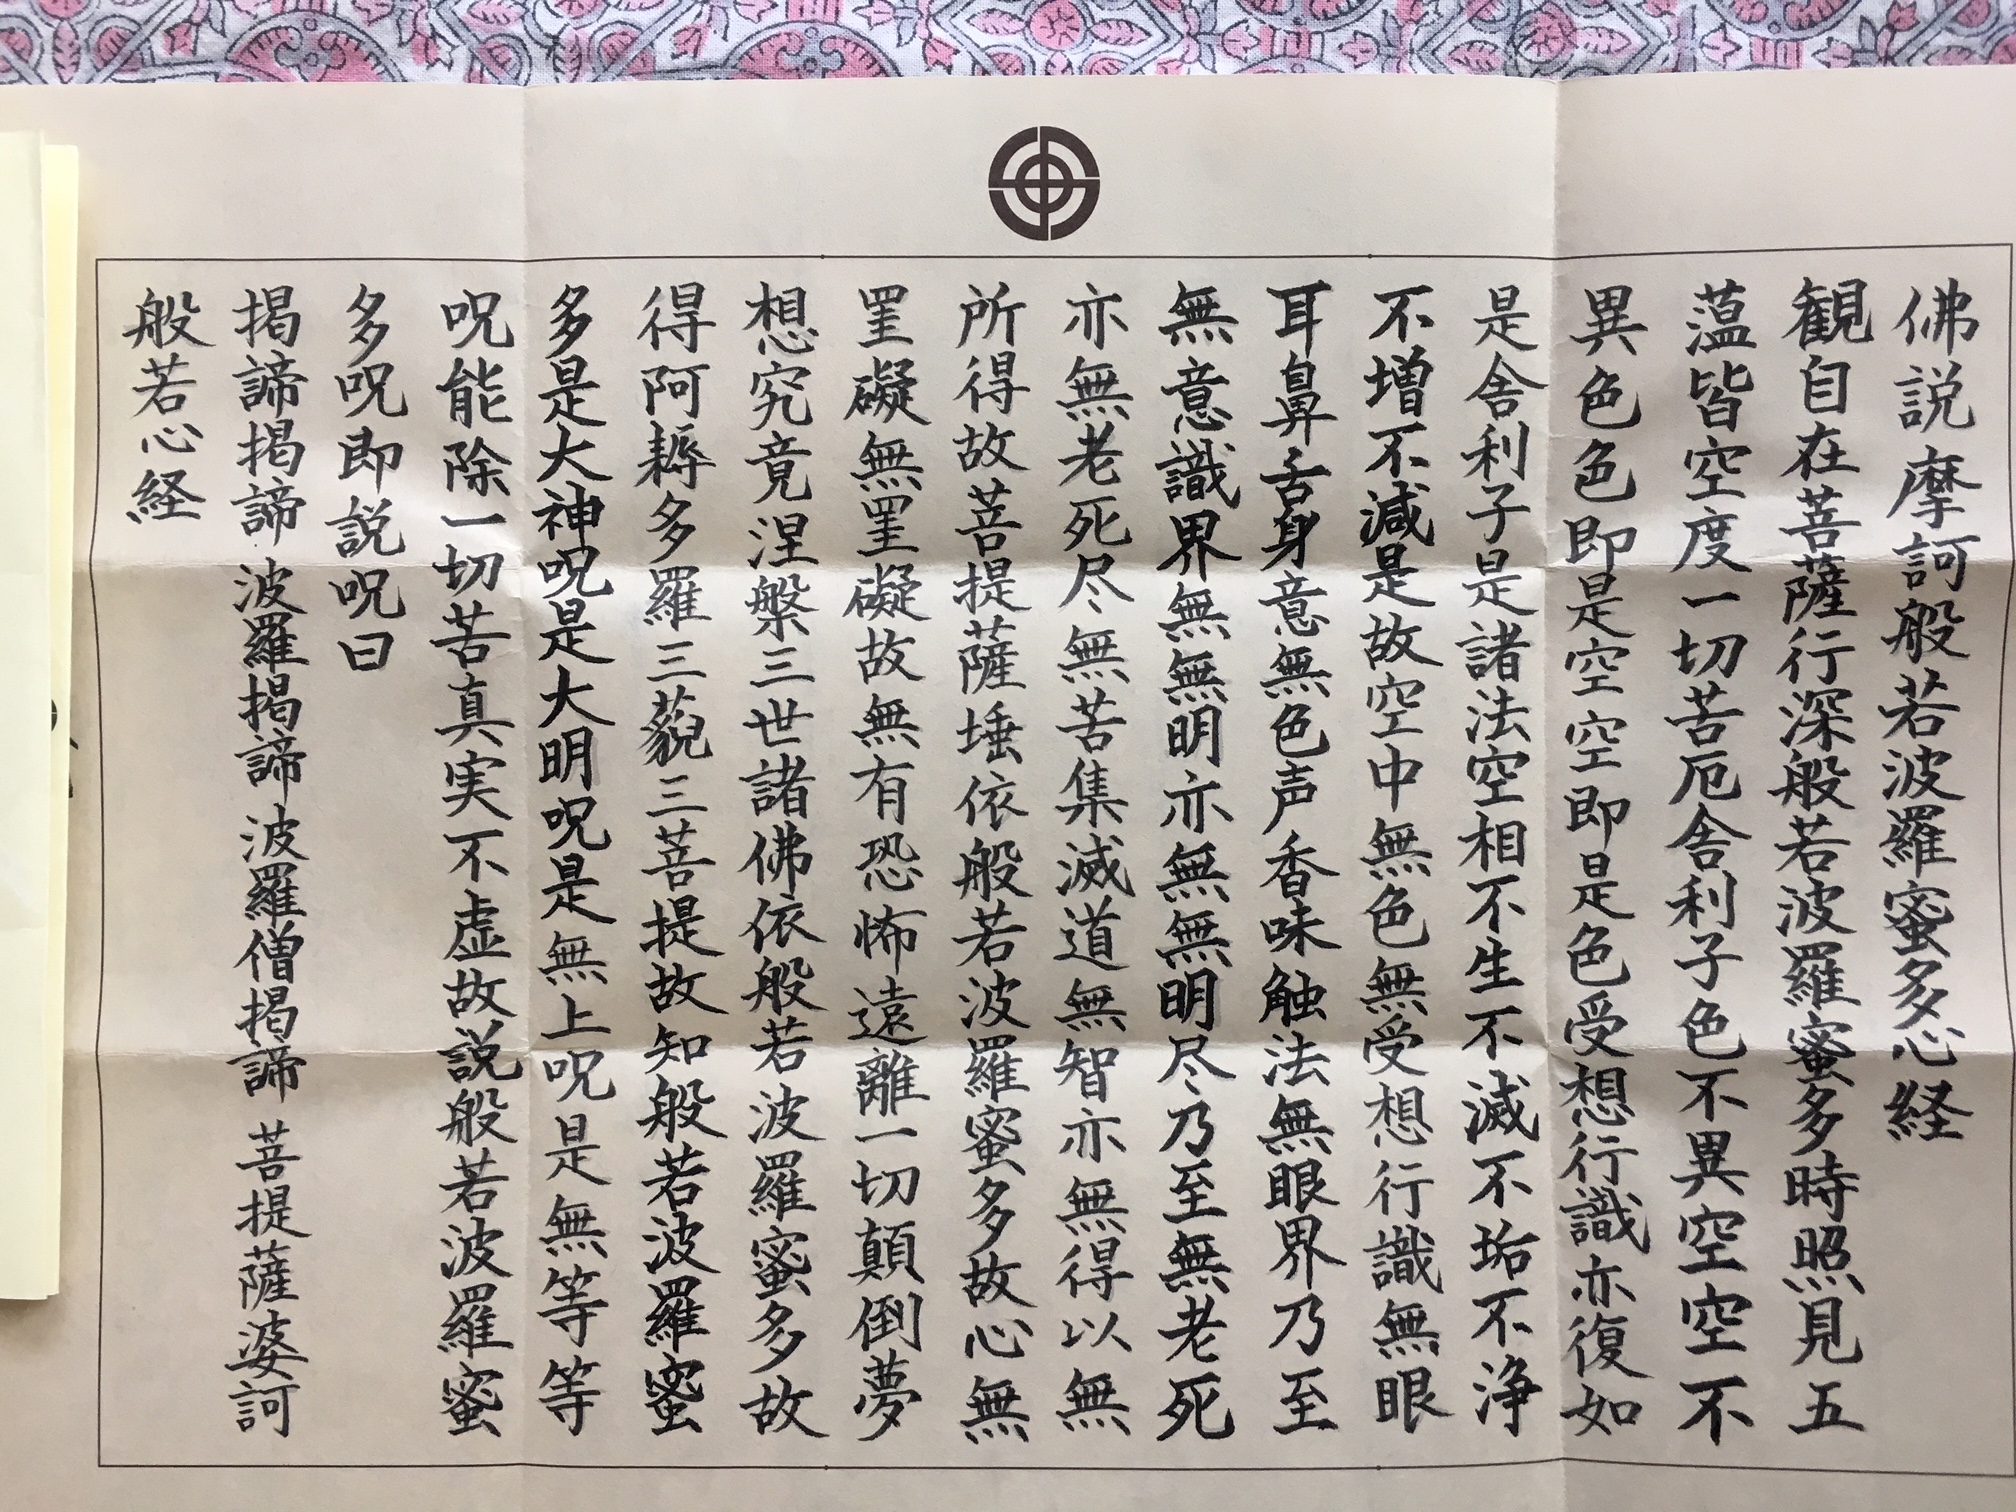 佛説摩訶般若波羅蜜多心経
観自在菩薩行深般若波羅蜜多時照見五
蘊皆空度一切苦厄舎利子色不異空空不
異色色即是空空即是色受想行識亦復如
是舎利子是諸法空相不生不滅不垢不浄
不増不減是故空中無色無受想行識無眼
耳鼻舌身意無色声香味触法無眼界乃至
無意識界無無明亦無無明尽乃至無老死
亦無老死尽無苦集滅道無智亦無得以無
所得故菩提薩埵依般若波羅蜜多故心無
罣礙無罣礙故無有恐怖遠離一切顛倒夢
想究竟涅槃三世諸佛依般若波羅蜜多故
得阿耨多羅三藐三菩提故知般若波羅蜜
多是大神呪是大明呪是無上呪是無等等
呪能除一切苦真実不虚故説般若波羅蜜
多呪即説呪曰
掲諦掲諦波羅掲諦波羅僧掲諦菩提薩婆訶
般若心経